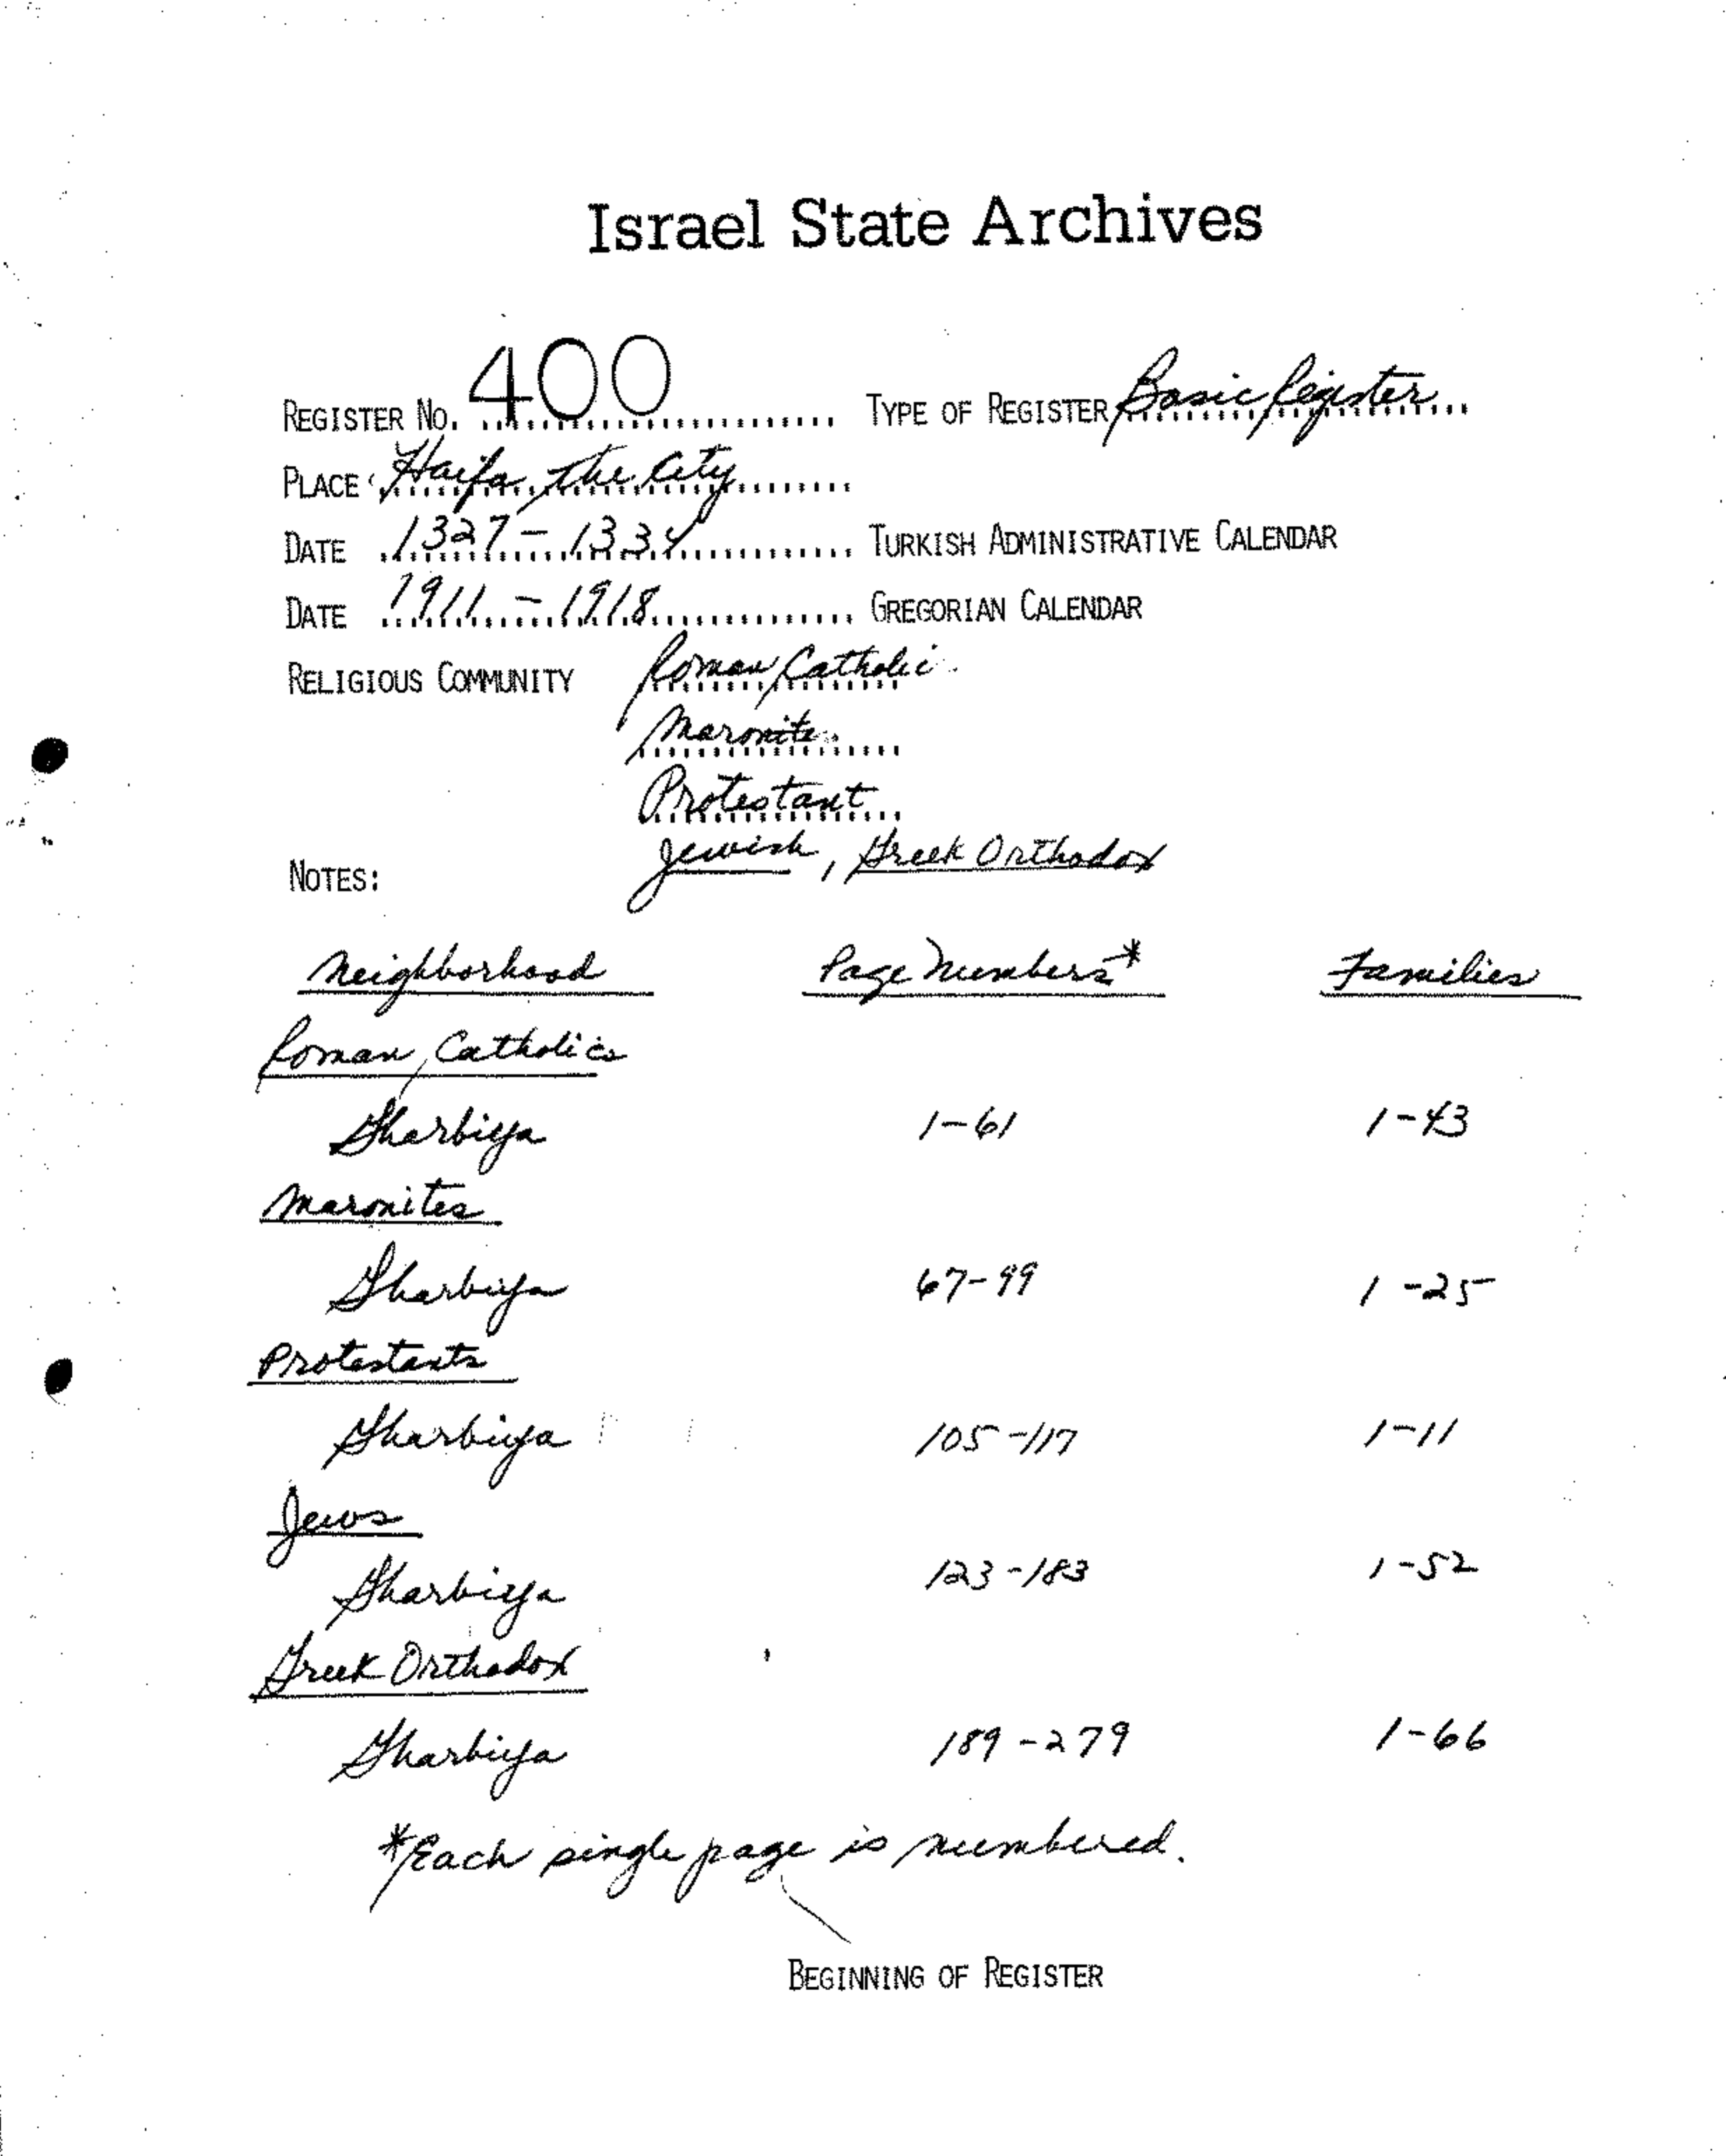 Israel State Archives
REGISTER NO. 400 TYPE OF REGISTER Basic Register
PLACE Haifa, the City
DATE 1327-1334 TURKISH ADMINISTRATIVE CALENDAR
DATE 1911-1918 GREGORIAN CALENDAR
RELIGIOUS COMMUNITY Roman Catholic
Maronite
Protestant
Jewish, Greek Orthodox
NOTES:
Neighborhood Page Numbers* Families
Roman Catholics
Gharbiya 1-61 1-43
Maronites
Gharbiya 67-99 1-25
Protestants
Gharbiya 105-117 1-11
Jews
Gharbiya 123-183 1-52
Greek Orthodox
Gharbiya 189-279 1-66
*Each single page is numbered.
BEGINNING OF REGISTER